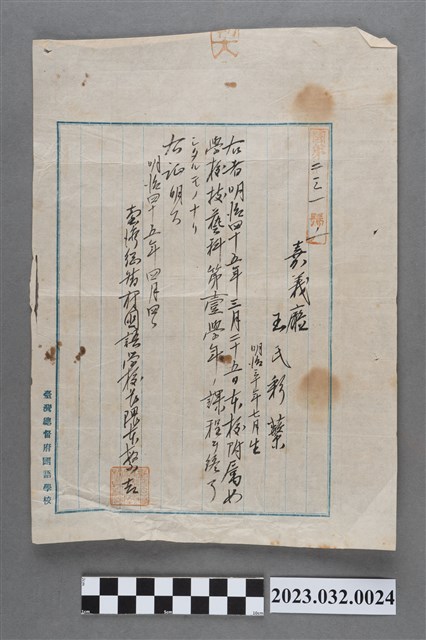 二三一
嘉義廳
王氏彩蘩
明治三十年七月生
右者明治四十五年三月二十五日本校附屬女
學校技藝科第壹學年ノ課程ヲ終了
シタルモノナリ
右証明ス
明治四十五年四月
臺灣總督府國語學校長隈本繁吉
臺灣總督府國語學校
2023.032.0024